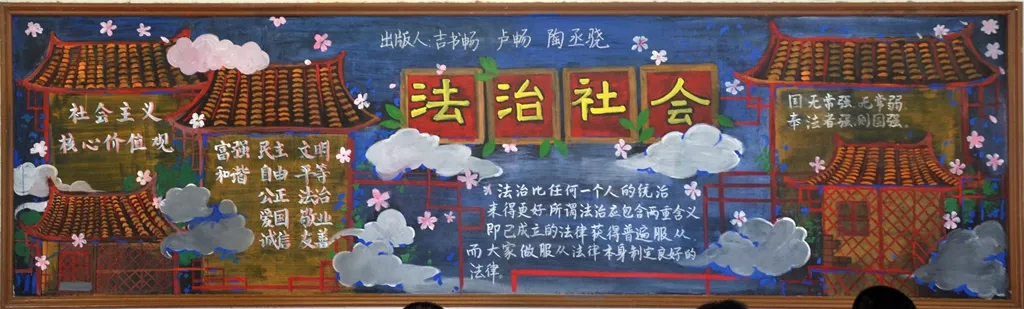 出版人:吉书畅 卢畅 陶丞骁
法治社会
社会主义
核心价值观
富强 民主 文明
和谐 自由 平等
公正 法治
爱国 敬业
诚信 友善
国无常强、无常弱
奉法者强、则国强。
法治比任何一个人的统治
来得更好所谓法治应包含两重含义
即已成立的法律获得普遍服从.
而大家做服从法律本身制定良好的
法律.